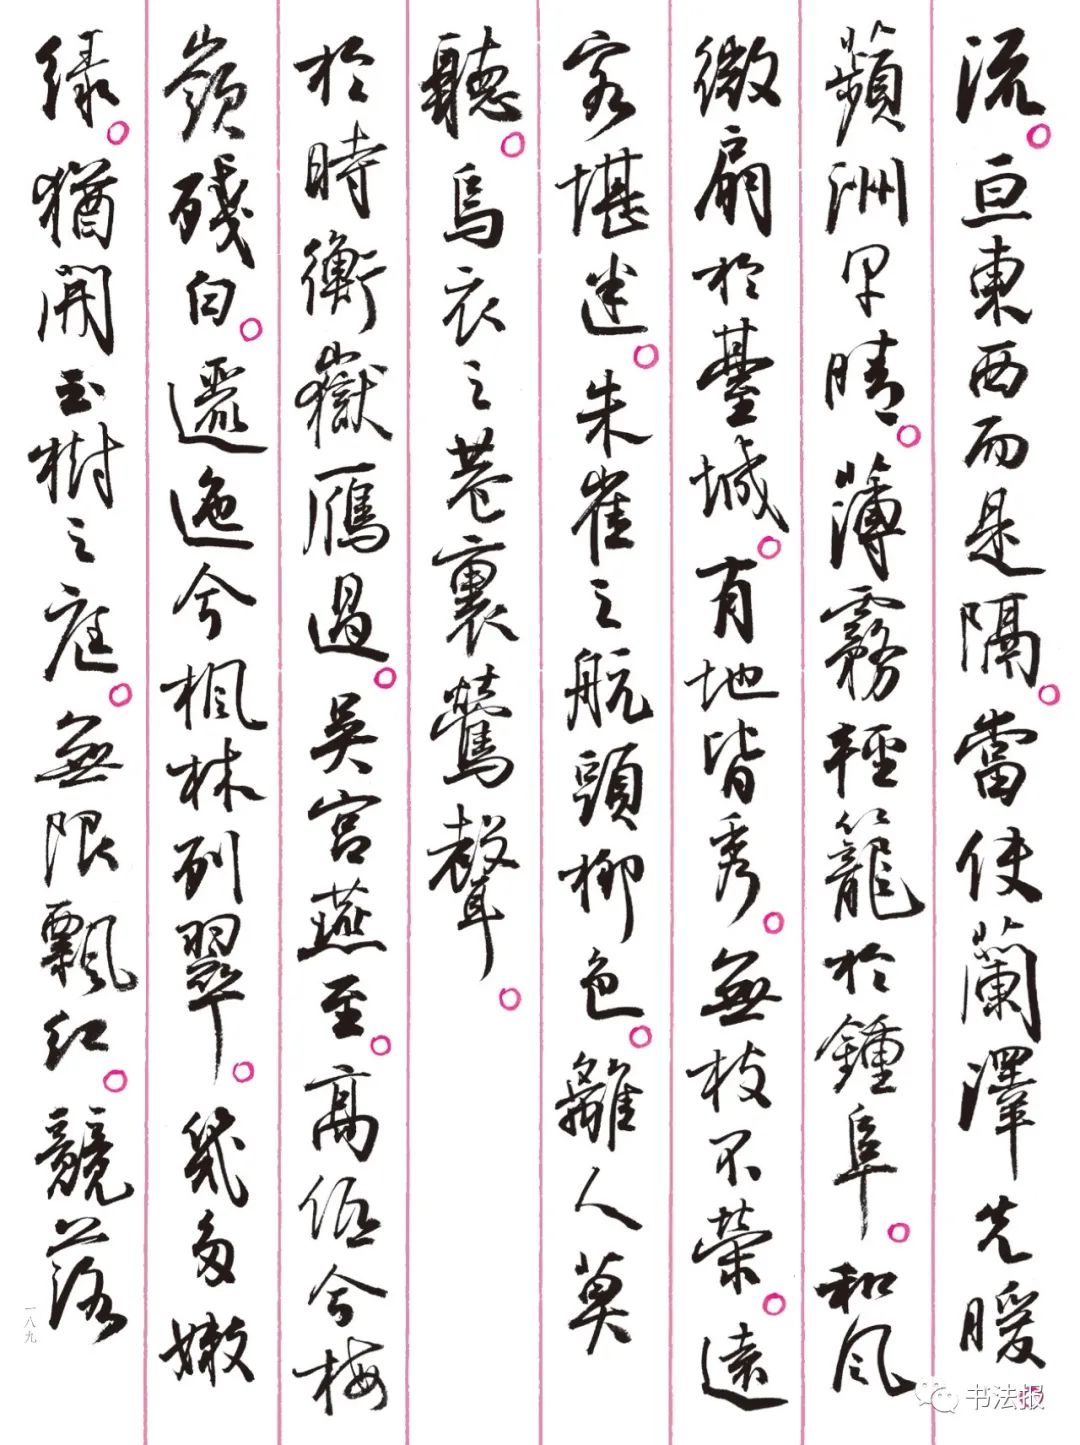 流。亘東西而是隔。當使蘭澤先暖。
蘋洲早晴。薄霧輕籠於鍾阜。和風
微扇於臺城。有地皆秀。無枝不榮。遠
客堪迷。朱雀之航頭柳色。離人莫
聽。烏衣之巷裏鶯聲。
於時衡嶽雁過。吳宮燕至。高低兮梅
嶺殘白。邐迤兮楓林列翠。幾多嫩
綠。猶開玉樹之庭。無限飄紅。競落
一八九
书法报